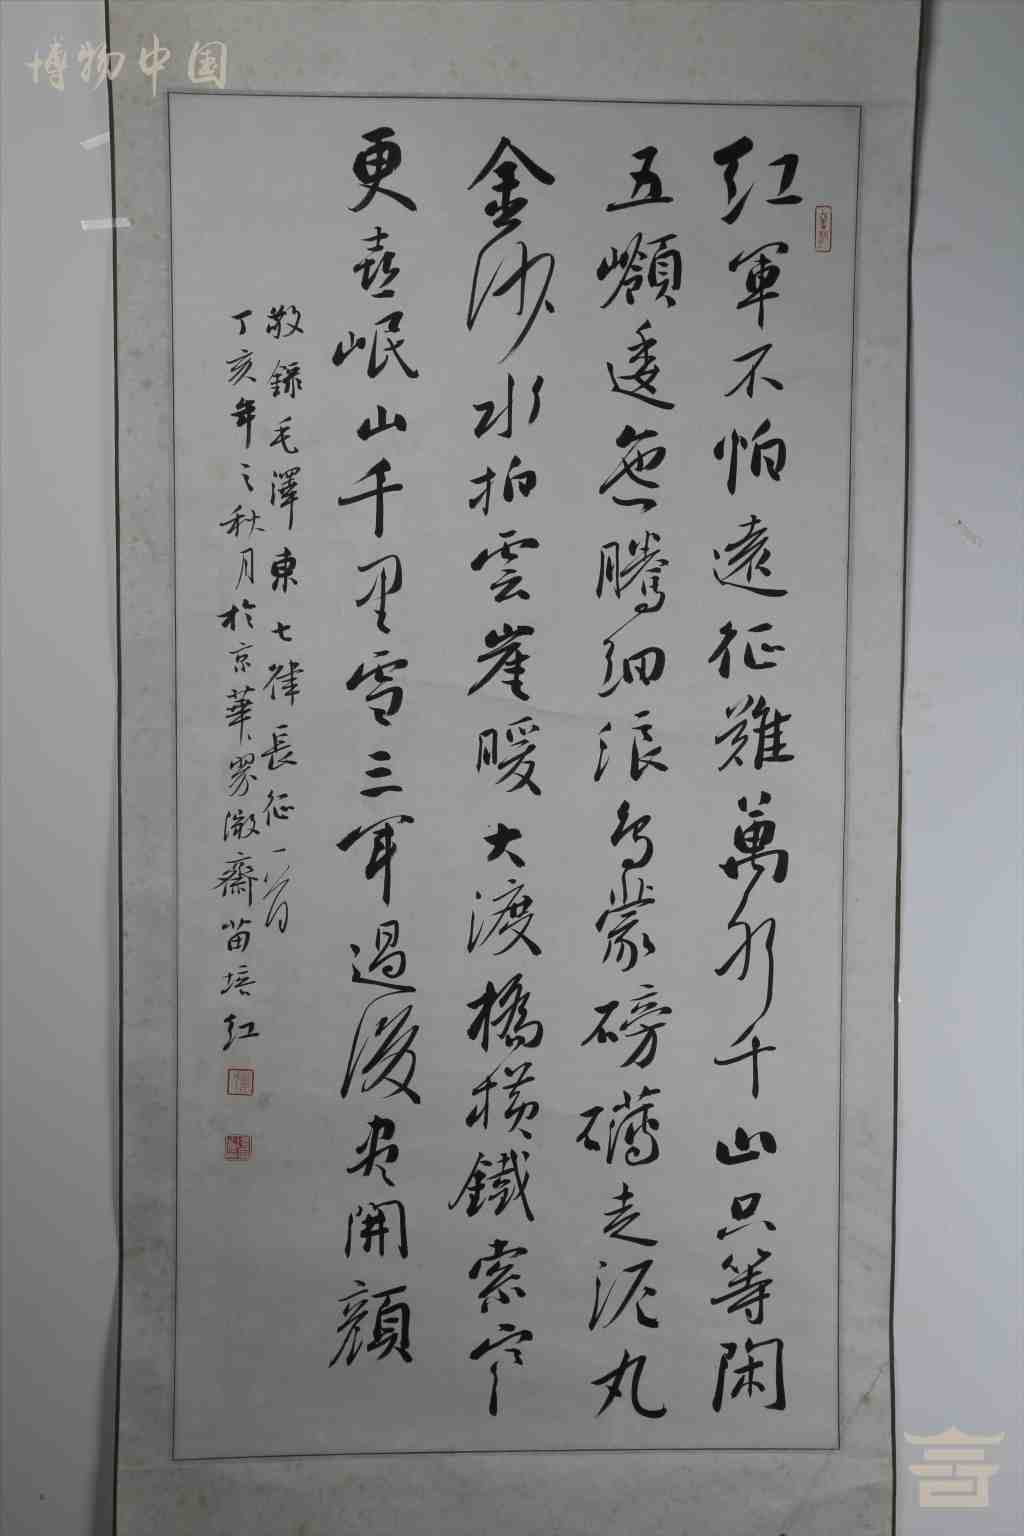 博物中国
紅軍不怕遠征難萬水千山只等閑
五嶺逶迤騰細浪烏蒙磅礴走泥丸
金沙水拍雲崖暖大渡橋橫鐵索寒
更喜岷山千里雪三軍過後盡開顏
敬錄毛澤東七律長征一首
丁亥年之秋月於京華翠微齋苗培紅